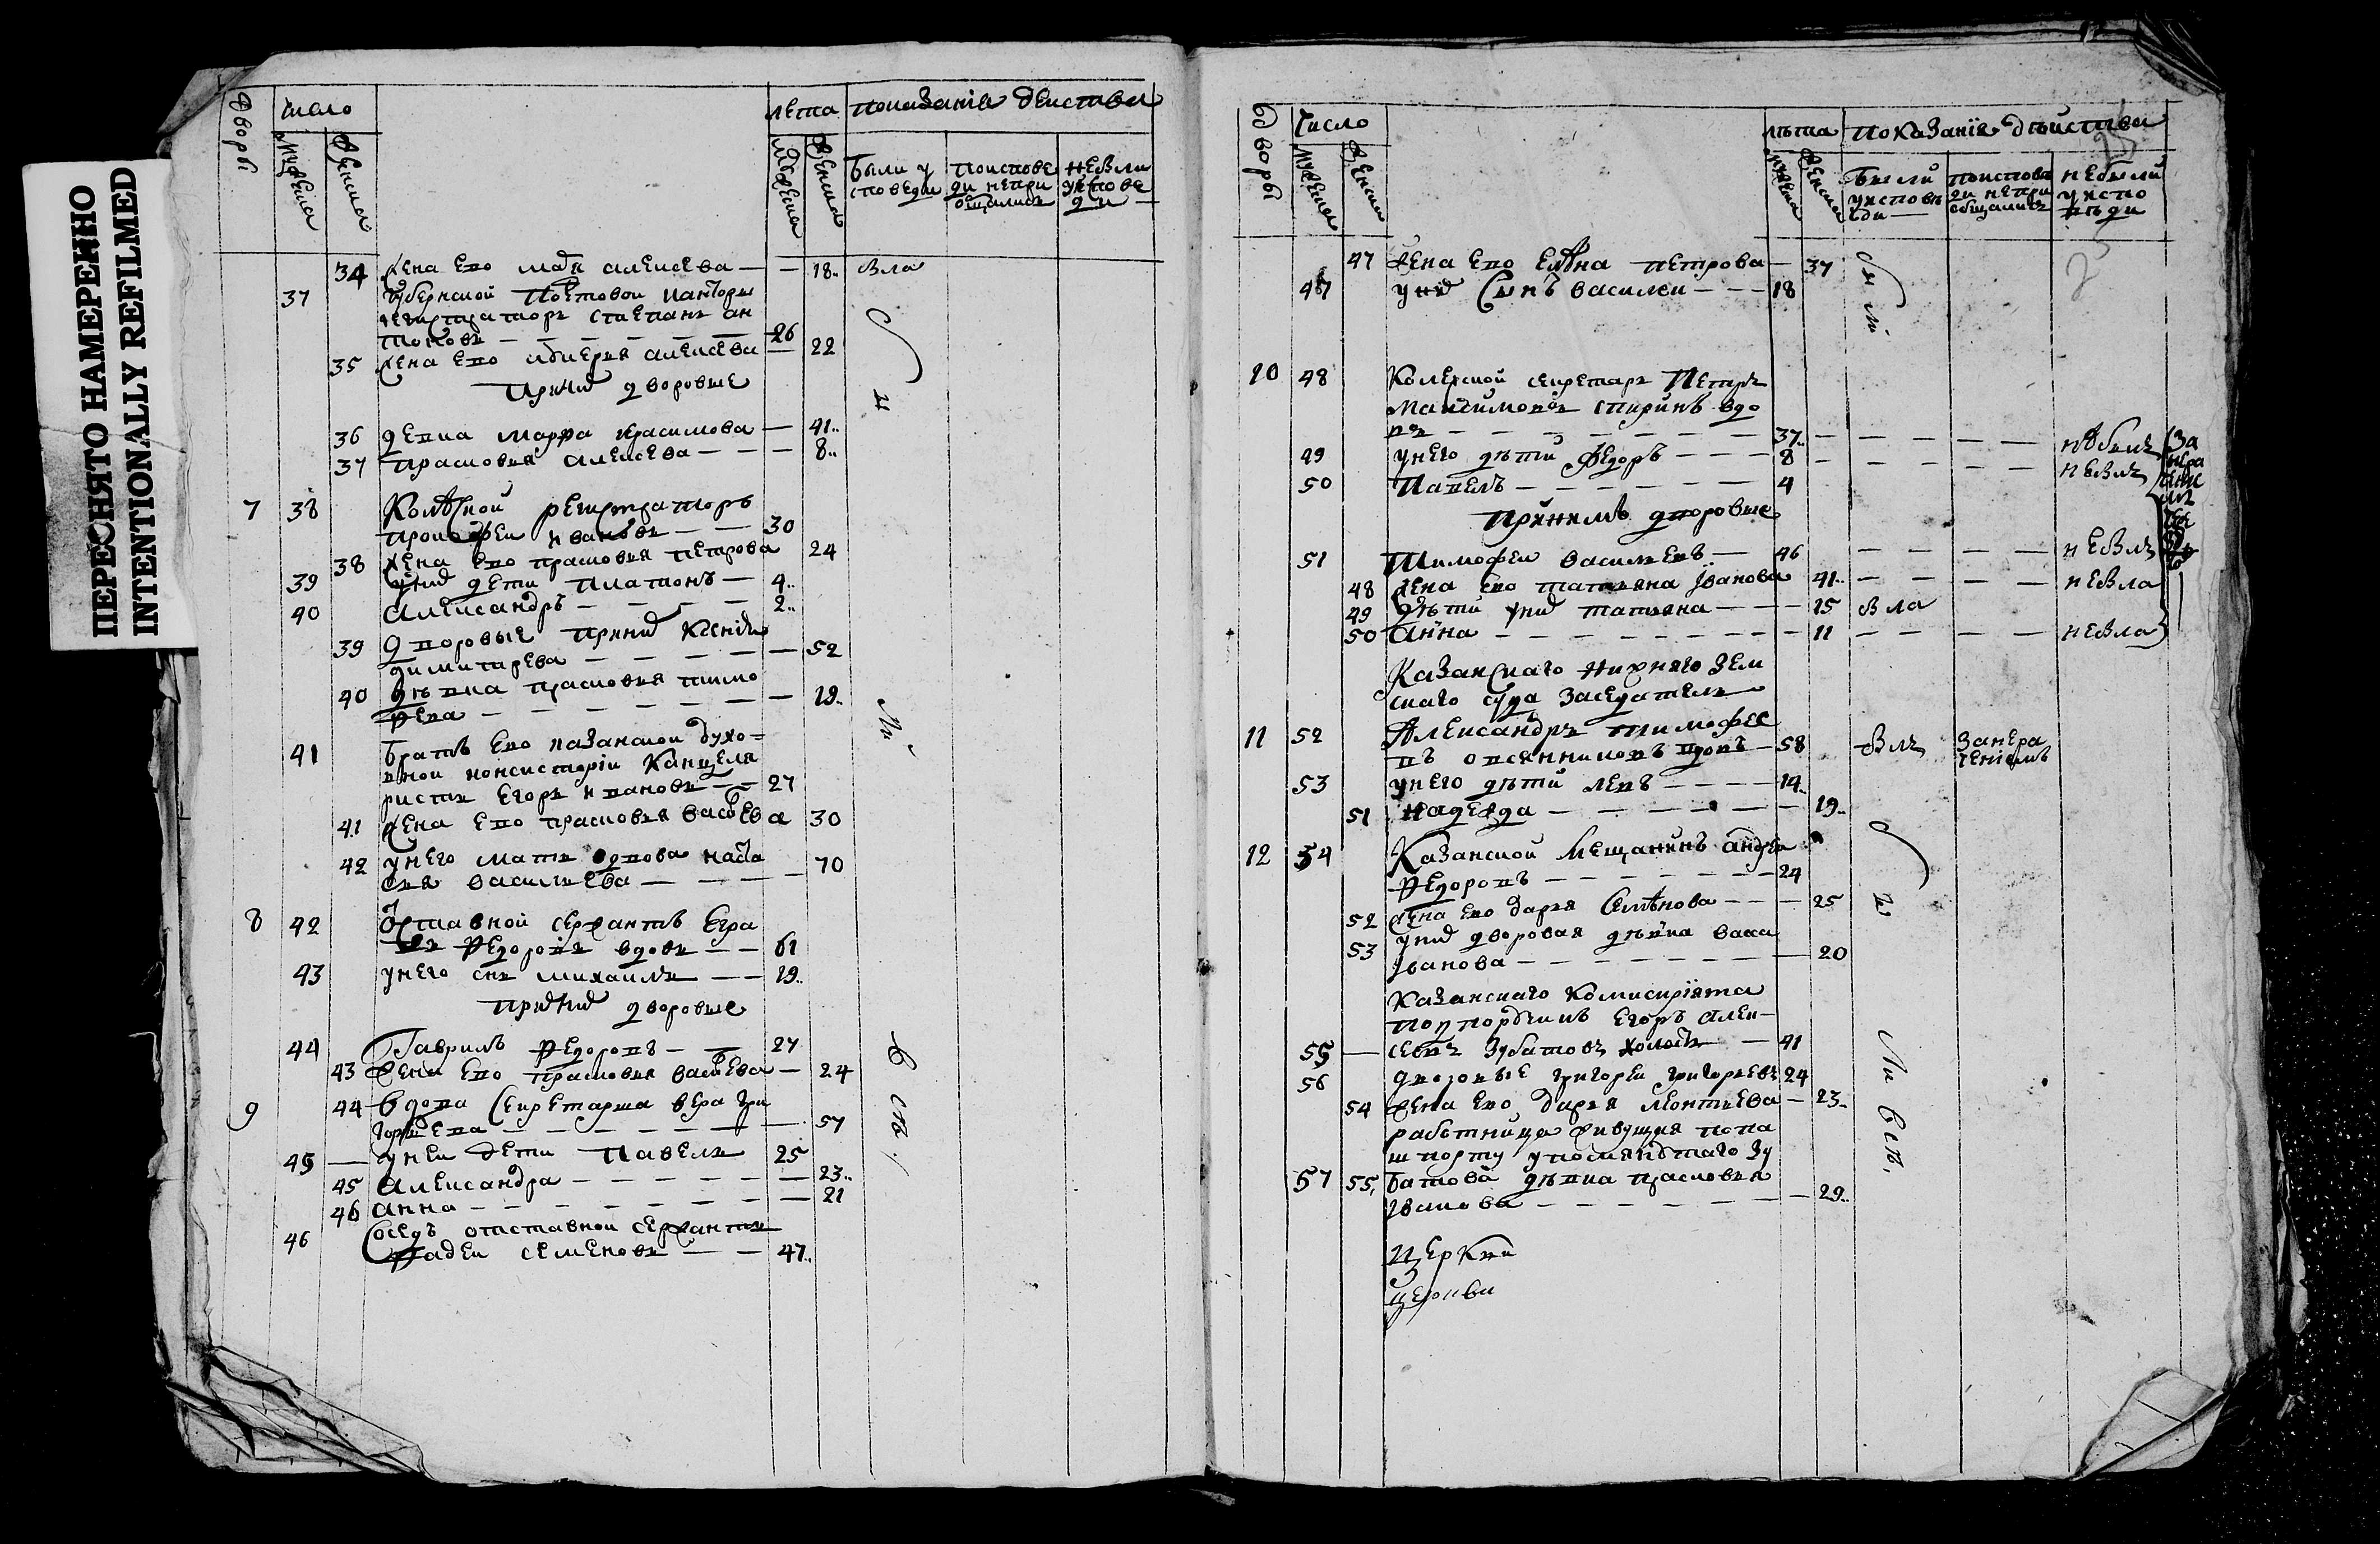 ПЕРЕСНЯТО НАМЕРЕННО
INTENTIONALLY REFILMED
Дворы
число
лета показание действа
мужеска
женска
мужеска
женска
Были у
споведи
поиспове
ди непри
общались
небыли
уиспове
ди
34 жена ево алексева — — 18 была
37 губернской почтовой канторы
регистратор степанъ ан
тоновъ — 26
35 жена ево алексева — 22
при них дворовые
36 девка марфа герасимова — 41
37 прасковья алексева — 8
7 38 колежской регистраторъ
прокофеи ивановъ — 30
38 жена ево прасковья петрова 24
39 у них дети платонъ — 4
40 александръ — 2
39 дворовые при них ксения
димитрева — 52
40 дѣвка прасковья тимо
фева — 19
41 братъ ево казанской духо=
вной консистории канцеля
ристъ егоръ ивановъ — 27
41 жена ево прасковья васильева 30
42 у него мать вдова наста
сья васильева — 70
8 42 отставной сержантъ
федоровъ вдовъ — 61
43 у него снъ михаилъ — 19
при них дворовые
44 Гаврилъ федоровъ — 27
43 жена ево прасковья васильева — 24
9 44 вдова секретарша вера гри
горьева — 57
45 — у неи дети павелъ 25
45 александра — 23
46 анна — 21
46 соседъ отставной сержантъ
фадеи семеновъ — 47
Дворы
Число
лѣта показанїе дѣйства
мужеска
женска
мужеска
женска
Были
уисповѣ
ди
поиспове
ди непри
общались
небыли
уиспо
вѣди
47 жена ево елена петрова — 37
47 у них сынъ василеи — 18
10 48 Колежской секретарь Петръ
Максимовъ спиринъ вдо
въ — 37 — небылъ
49 у него дѣти федоръ — 8 — небылъ
50 Павелъ — 4
при немъ дворовые
51 Тимофеи васильевъ — 46 — небылъ
48 жена ево татьяна иванова 41 — небыла
49 дѣти у них татьяна — 15 была
50 Анна — 11 — небыла
Казанскаго нижняго зем
скаго суда заседатель
11 52 Александръ тимофее
въ овсянниковъ вдовъ — 58 былъ занера
ченiемъ
53 у него дѣти левъ — 14
51 надежда — 19
12 54 Казанской мещанинъ андреи
федоровъ — 24
52 жена ево дарья семенова — 25
53 у них дворовая дѣвка васса
иванова — 20
казанскаго комисариата
егоръ алек-
55 — севъ зубатовъ холостъ — 41
56 дворовые григореи григорьевъ 24
54 жена ево дарья леонтьева — 23
работница живущия попа
шпорту упомянутаго зу
57 55 батова дѣвка прасковья
иванова — 29
церкви
церкви